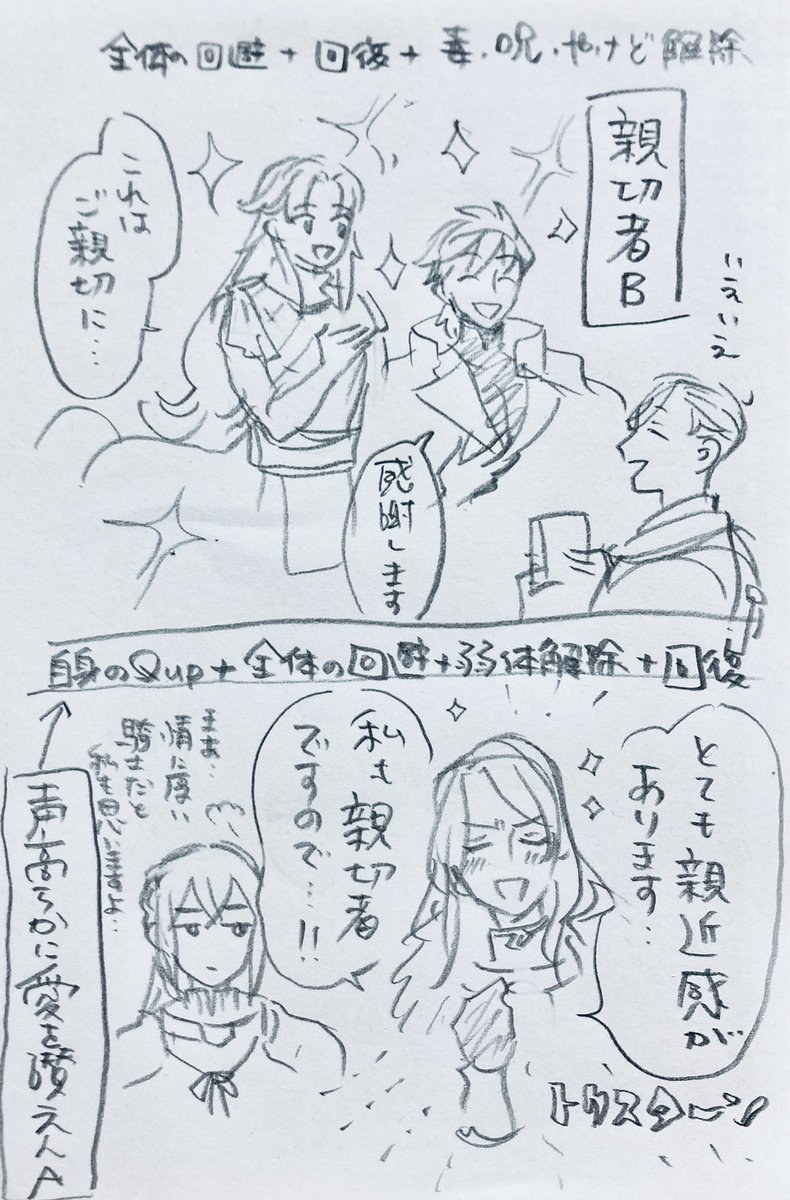 全体の回避+回復+毒・呪・やけど解除
親切者B
いえいえ
これは
ご親切に…
感謝します
自身のQup+全体の回避+弱体解除+回復
とても親近感が
あります…
私も親切者
ですので…!!
まあ…
情に厚い
騎士だと
私も思いますよ…
声高らかに愛を讃えんA